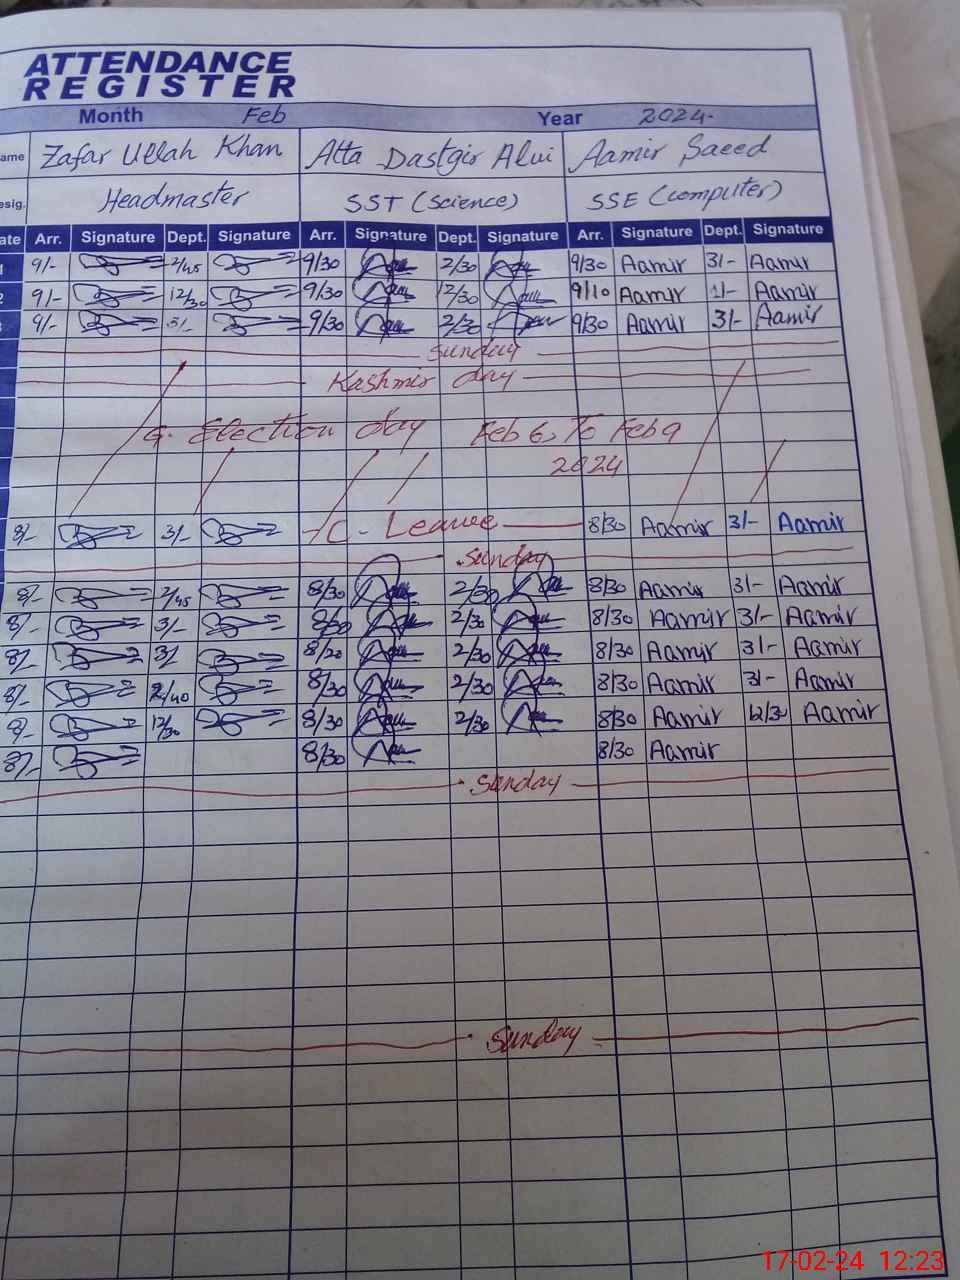 ATTENDANCE
REGISTER
Month Feb Year 2024.
ame Zafar Ullah Khan Atta Dastgir Alvi Aamir Saeed
esig. Headmaster SST (Science) SSE (Computer)
ate Arr. Signature Dept. Signature Arr. Signature Dept. Signature Arr. Signature Dept. Signature
1 9/- 2/45 9/30 2/30 9/30 Aamir 3/- Aamir
2 9/- 12/30 9/30 12/30 9/10 Aamir 1/- Aamir
3 9/- 3/- 9/30 2/30 9/30 Aamir 3/- Aamir
Sunday
Kashmir day
G. Election day Feb 6, To Feb 9
2024
8/- 3/- C- Leavee 8/30 Aamir 3/- Aamir
Sunday
8/- 2/45 8/30 2/30 8/30 Aamir 3/- Aamir
8/- 3/- 8/30 2/30 8/30 Aamir 3/- Aamir
8/- 3/ 8/20 2/30 8/30 Aamir 3/- Aamir
8/- 2/40 8/30 2/30 8/30 Aamir 3/- Aamir
8/- 12/30 8/30 2/30 8/30 Aamir 12/30 Aamir
8/- 8/30 8/30 Aamir
Sunday
Sunday
17-02-24 12:23